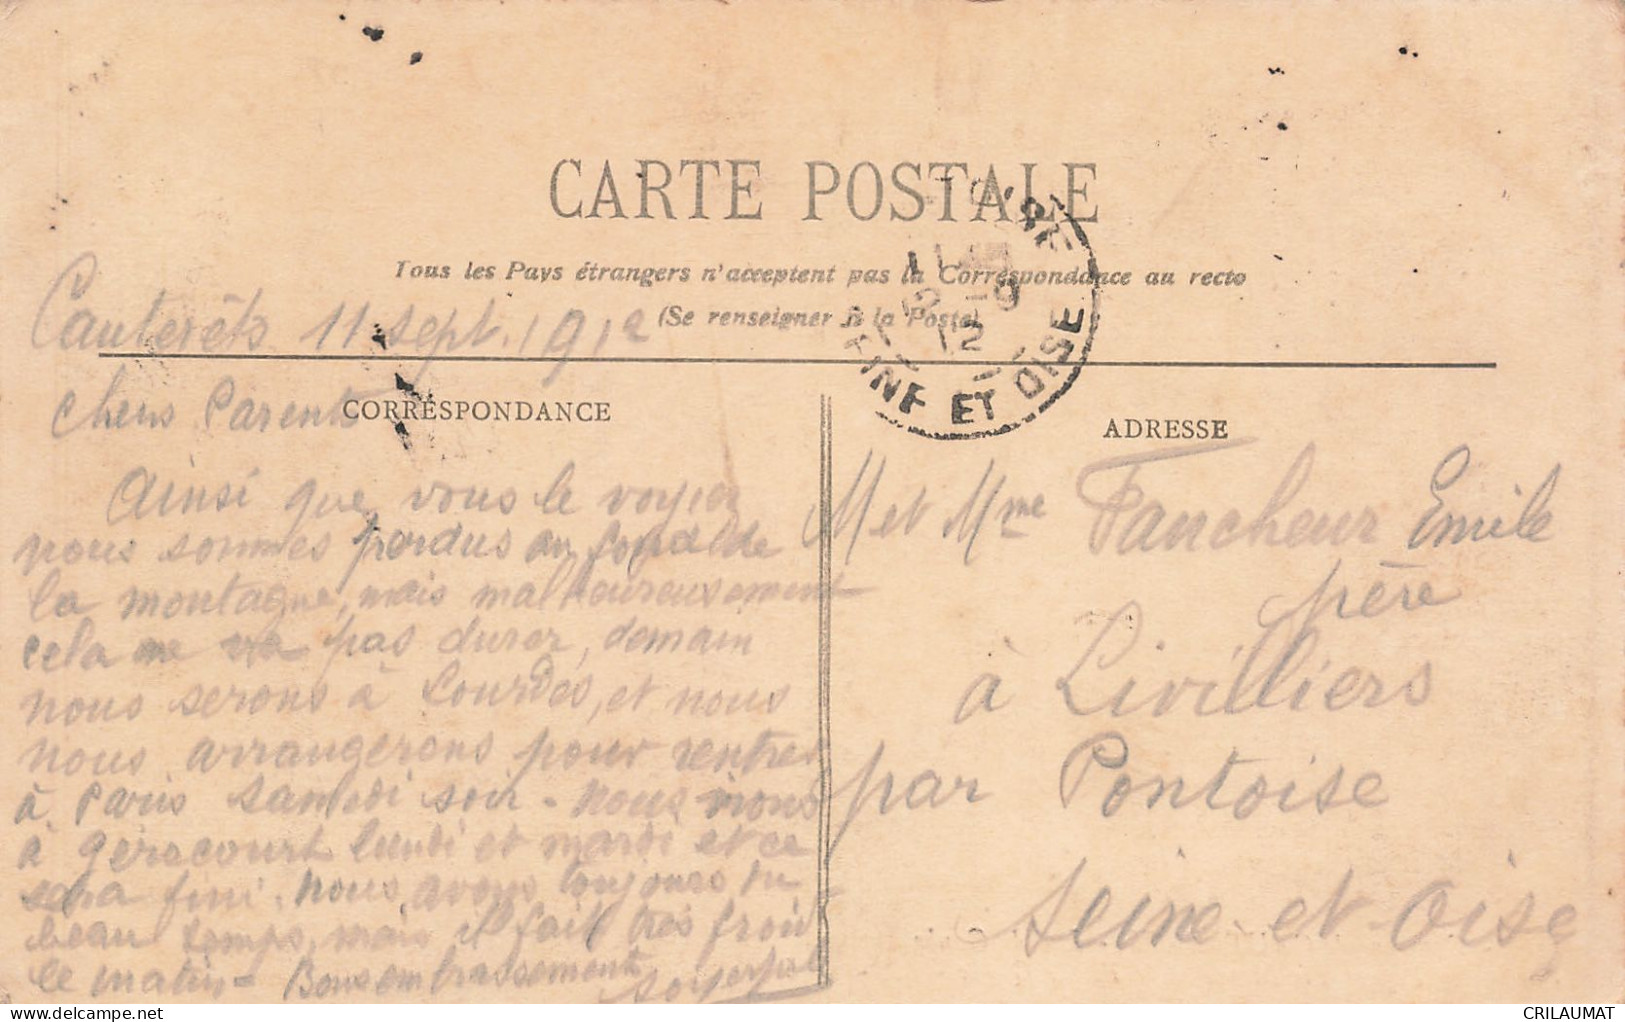 CARTE POSTALE
Tous les Pays étrangers n'acceptent pas la Correspondance au recto
(Se renseigner à la Poste)
Cauterêts 11 sept. 1912
CORRESPONDANCE
chers Parents
Ainsi que vous le voyiez
nous sommes perdus au fond de
la montagne, mais malheureusement
cela ne va pas durer, demain
nous serons à Lourdes, et nous
nous arrangerons pour rentrer
à Paris samedi soir - nous irons
à Gérocourt lundi et mardi et ce
sera fini. Nous avons toujours du
beau temps, mais il fait très froid
le matin - Bons embrassements
ADRESSE
M et Mme Fancheur Emile
père
à Livilliers
par Pontoise
Seine et Oise
11
9
12
ET OISE
CRILAUMAT